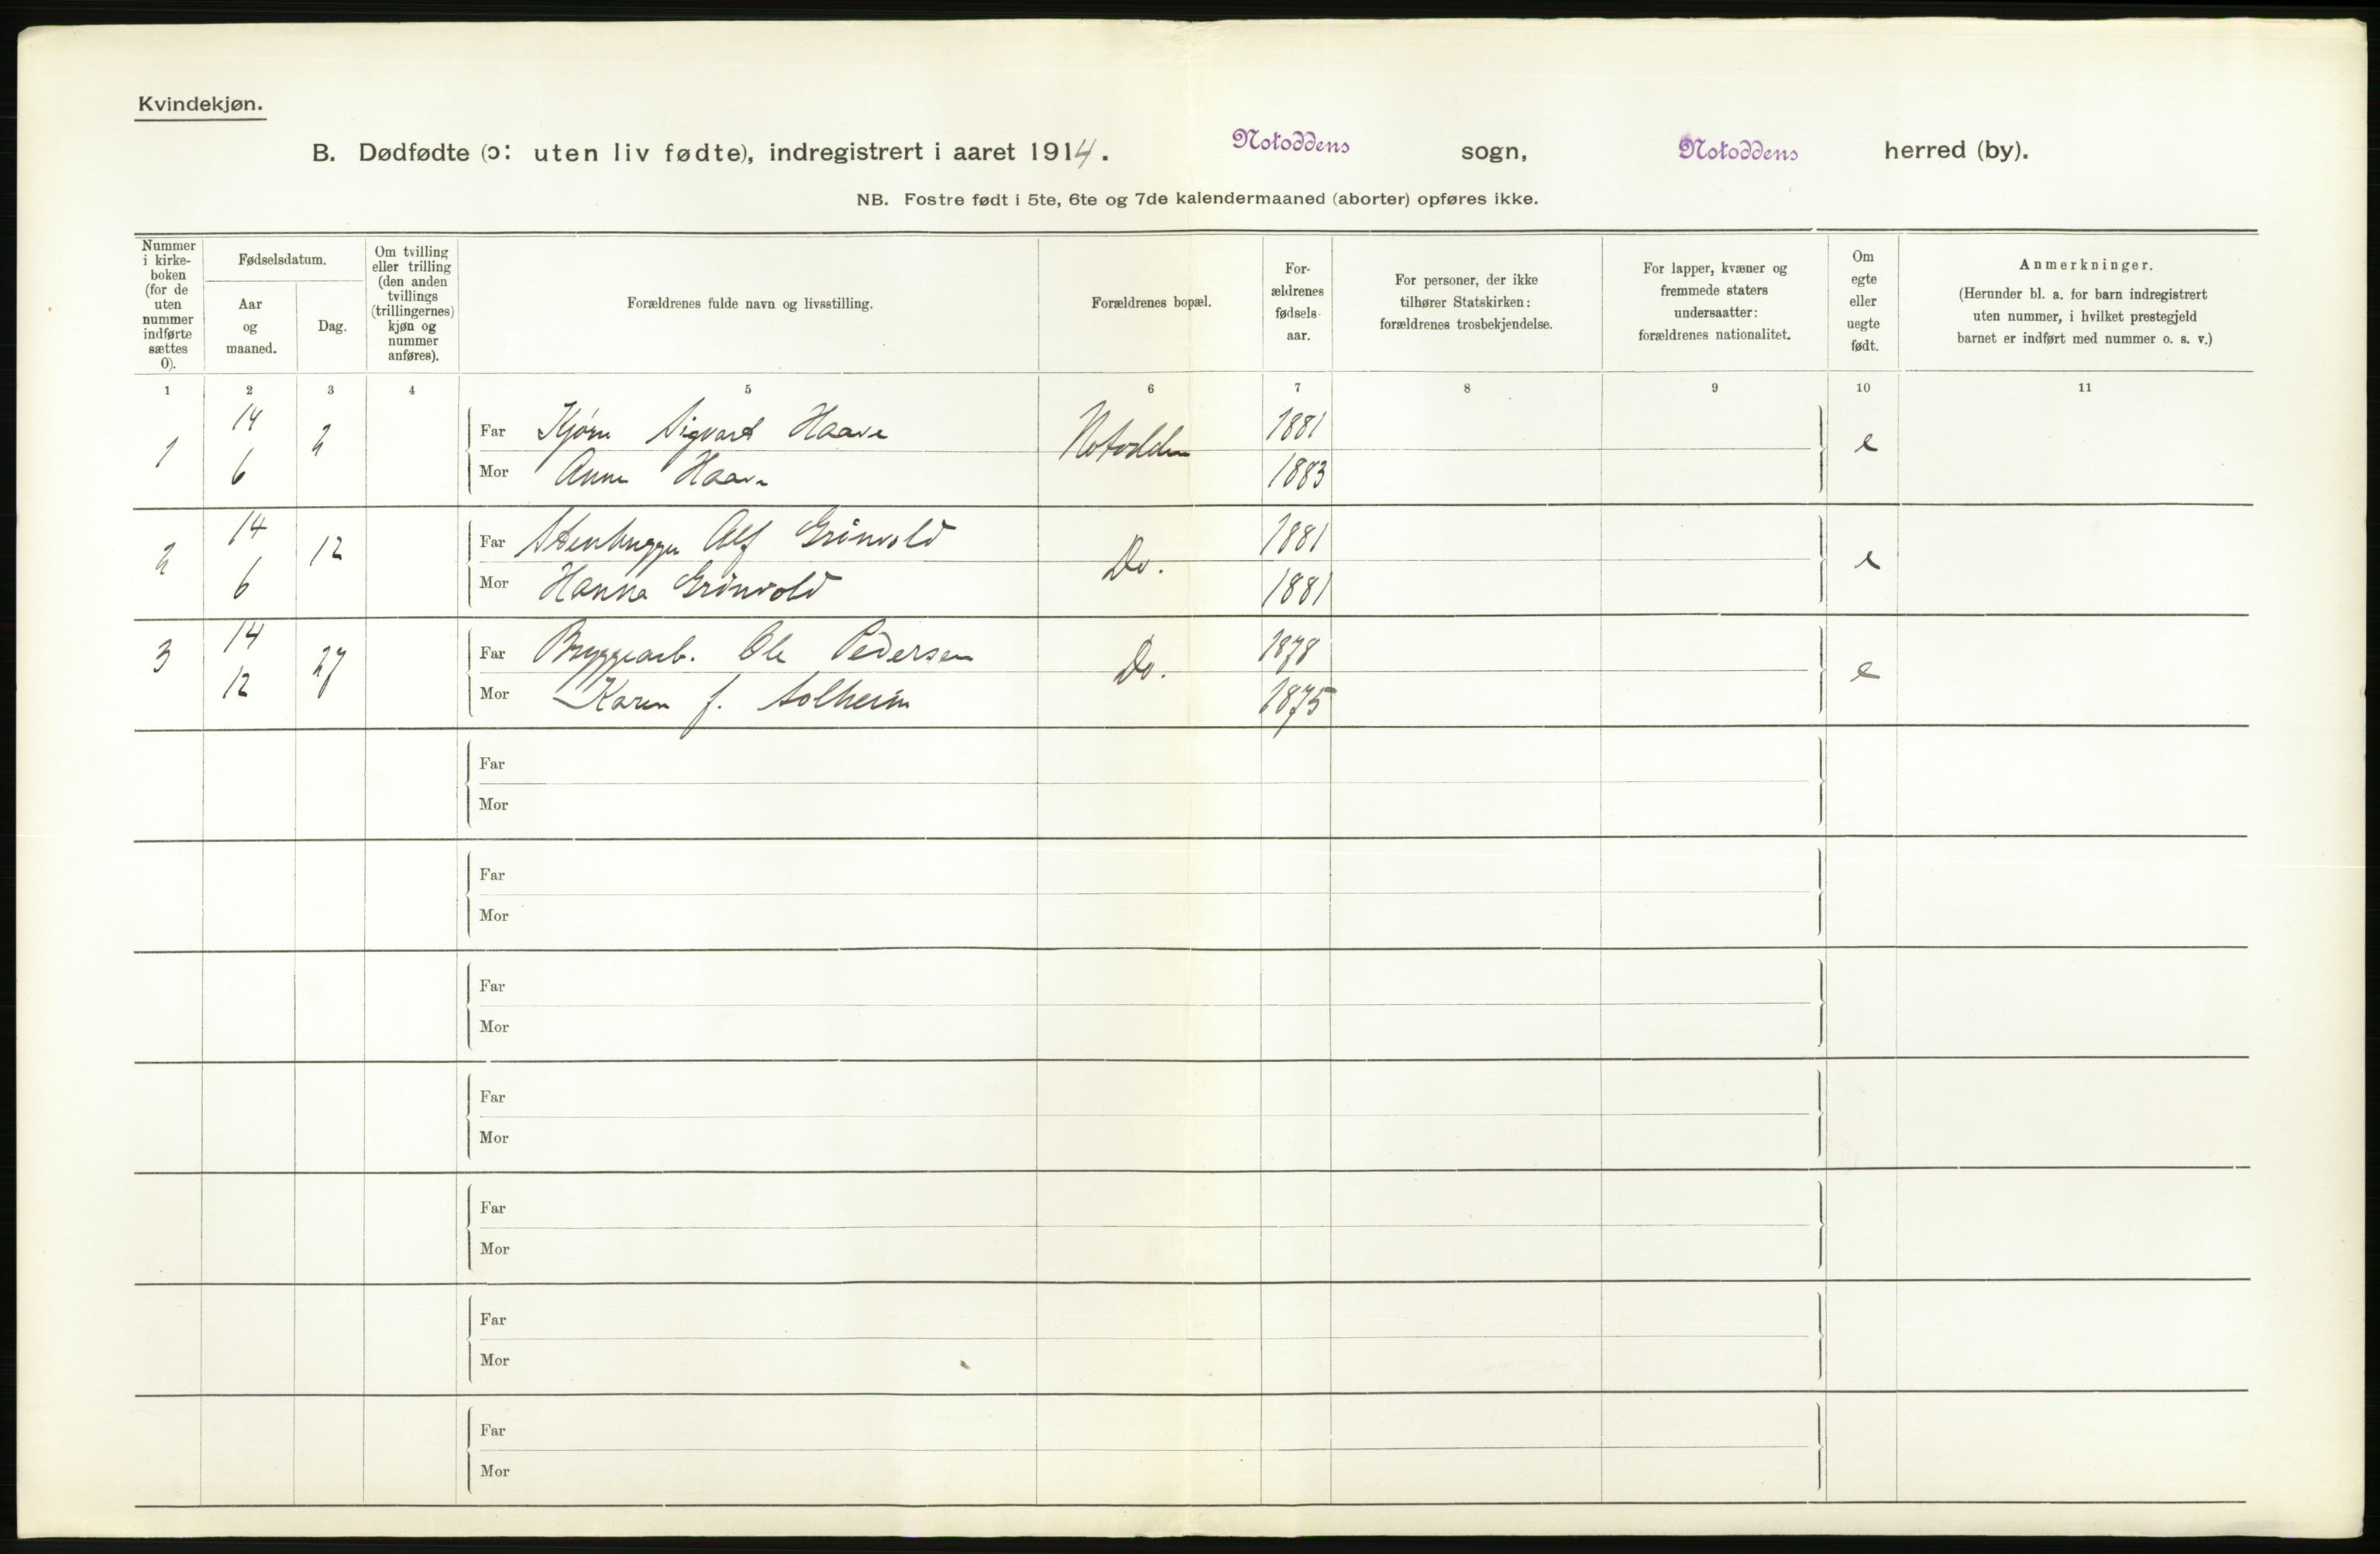 Kvindekjøn.
B. Dødfødte (ɔ: uten liv fødte), indregistrert i aaret 1914. Notoddens sogn, Notoddens herred (by).
NB. Fostre født i 5te, 6te og 7de kalendermaaned (aborter) opføres ikke.
Nummer
i kirke-
boken
(for de
uten
nummer
indførte
sættes
0).
Fødselsdatum.
Aar
og
maaned.
Dag.
Om tvilling
eller trilling
(den anden
tvillings
(trillingernes)
kjøn og
nummer
anføres).
Forældrenes fulde navn og livsstilling.
Forældrenes bopæl.
For-
ældrenes
fødsels-
aar.
For personer, der ikke
tilhører Statskirken:
forældrenes trosbekjendelse.
For lapper, kvæner og
fremmede staters
undersaatter:
forældrenes nationalitet.
Om
egte
eller
uegte
født.
Anmerkninger.
(Herunder bl. a. for barn indregistrert
uten nummer, i hvilket prestegjeld
barnet er indført med nummer o. s. v.)
1 2 3 4 5 6 7 8 9 10 11
1 14 6 2 Far Sigvard Haave Notodden 1881 e
Mor Anne Haave 1883
2 14 6 12 Far Stenhugger Alf Grinvold Do. 1881 e
Mor Hanna Grinvold 1881
3 14 12 27 Far Bryggearb. Ole Pedersen Do. 1878 e
Mor Karen f. Solheim 1875
Far
Mor
Far
Mor
Far
Mor
Far
Mor
Far
Mor
Far
Mor
Far
Mor